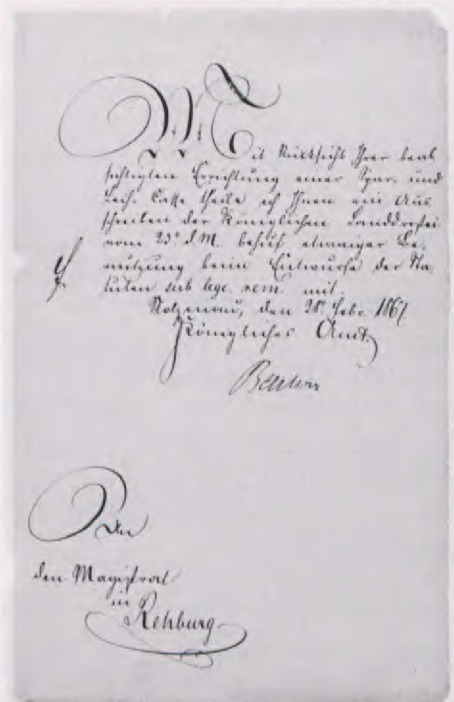 Mit Rücksicht Ihrer beab
sichtigten Errichtung einer Spar- und
Leih-Casse theile ich Ihnen ein Aus
schreiben der Königlichen Landdrostei
vom 23t d. M. behuf etwaiger Be-
nutzung beim Entwurfe der Sta-
tuten sub lege rem. mit.
Stolzenau, den 28t Febr. 1867
Königliches Amt.
An
den Magistrat
in
Rehburg